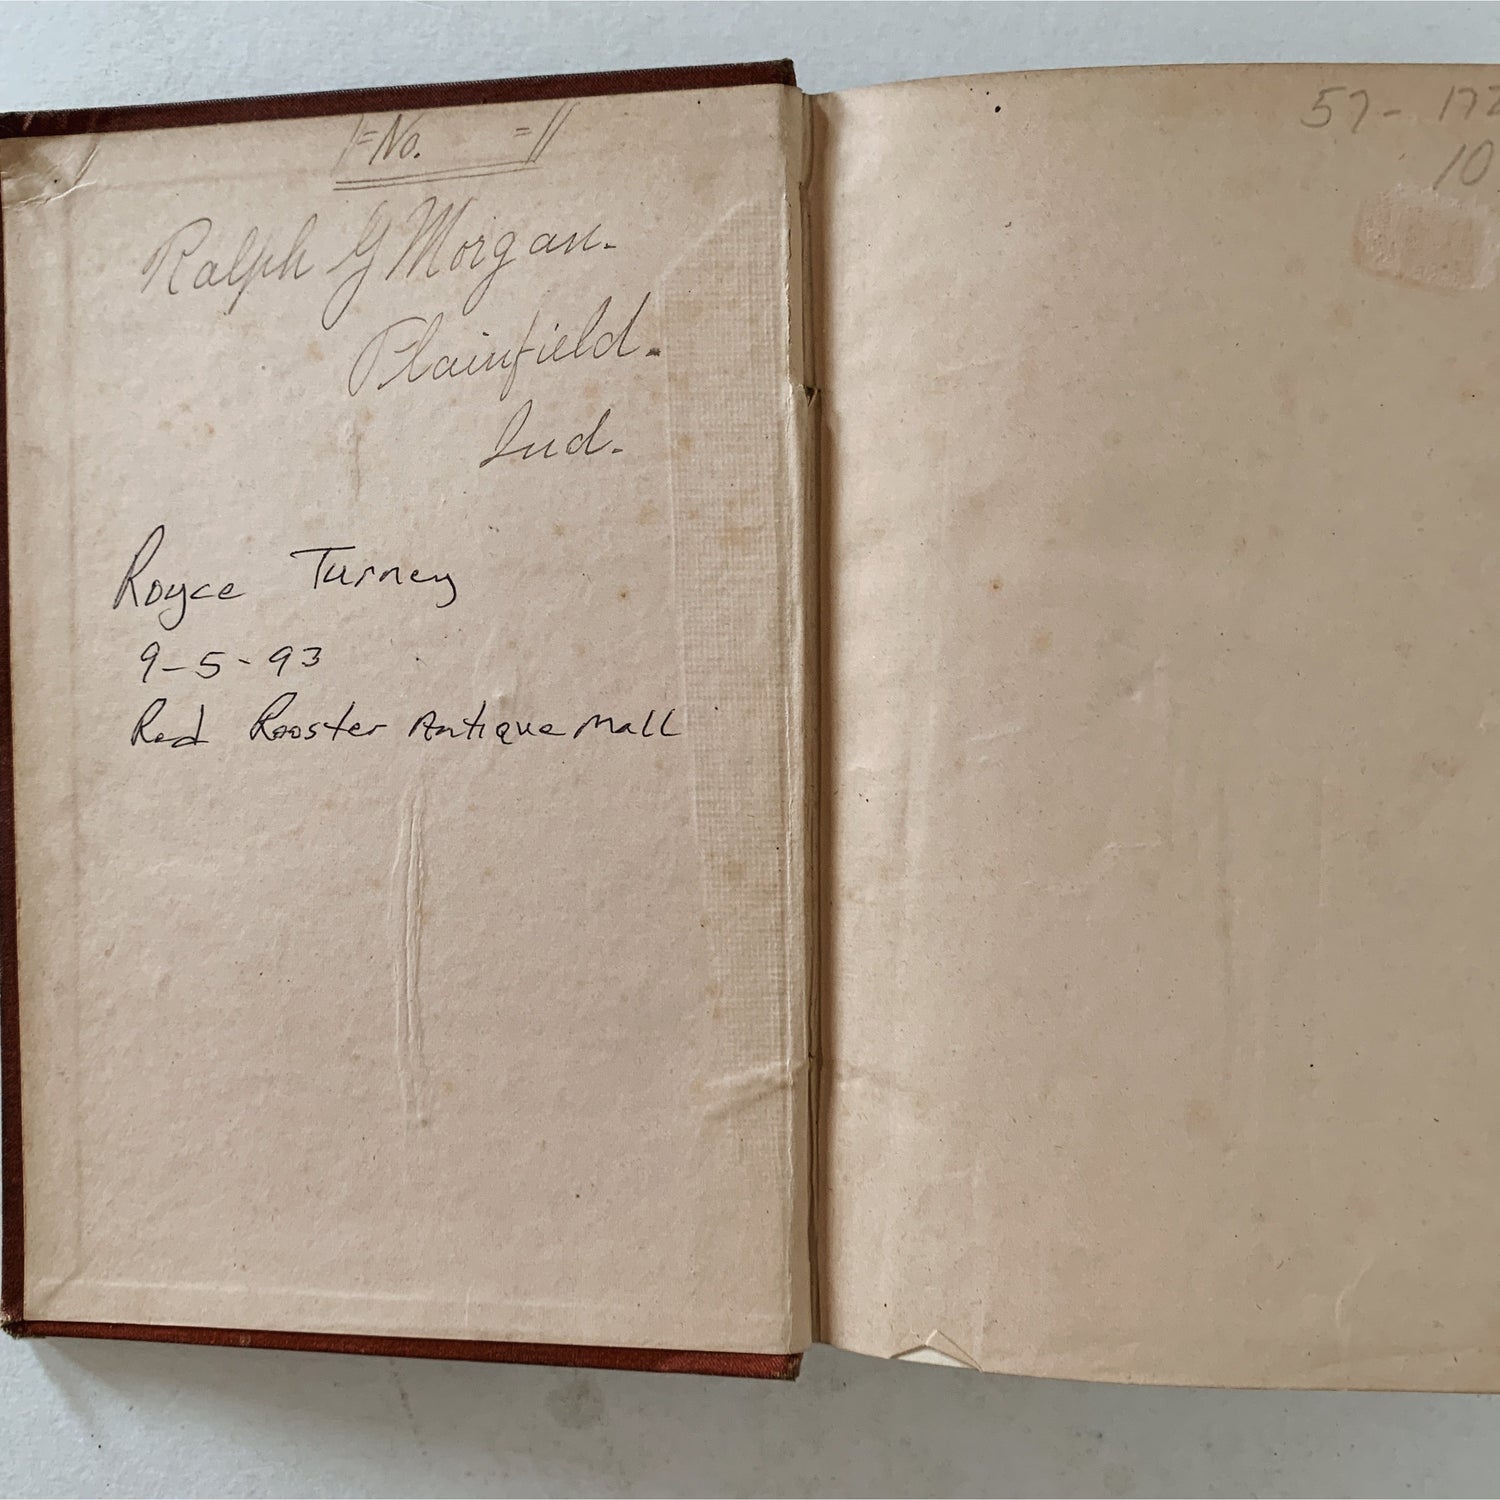 No.
Ralph G Morgan.
Plainfield.
Ind.
Royce Turney
9-5-93
Red Rooster Antique Mall
57-
10